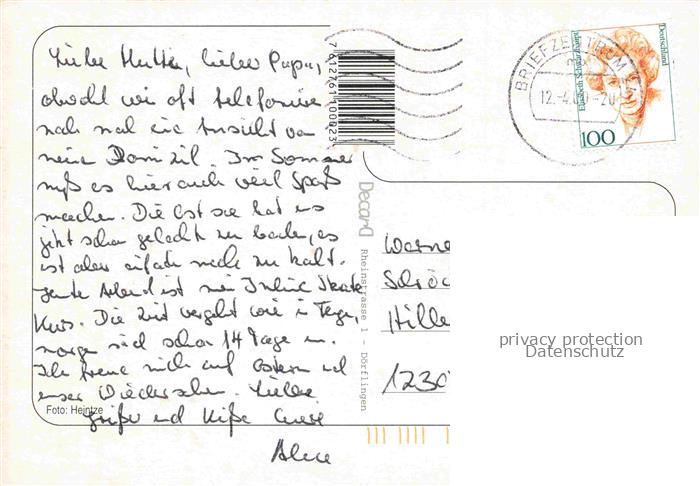 Liebe Mutter, lieber Papa,
obwohl wir oft telefonieren
noch mal eine Ansicht von
mein Domizil. Im Sommer
muß es hier auch viel Spaß
machen. Die Ostsee hat uns
jetzt schon gelockt zu baden, es
ist aber einfach noch zu kalt.
heute Abend ist mein Inline Skate
Kurs. Die Zeit vergeht wie im Fluge,
morgen sind schon 14 Tage um.
Ich freue mich auf Ostern und
unser Wiedersehen. Liebe
Grüße und Küße Eure
Foto: Heintze
7612761100023
Decard
Rheinstrasse 1 - Dörflingen
BRIEFZENTRUM
12.-4.
Elisabeth Schwarzhaupt
Deutschland
100
Werne
Hille
1230
privacy protection
Datenschutz